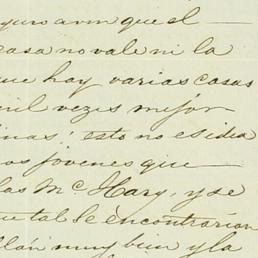 guro avon que el
casa no vale ni la
que hay varias casas
mil vezes mejor
inas; esto no es idea
os jóvenes que
las Mc. Hary, y se
que tal le encontrarían
llán muy bien y la